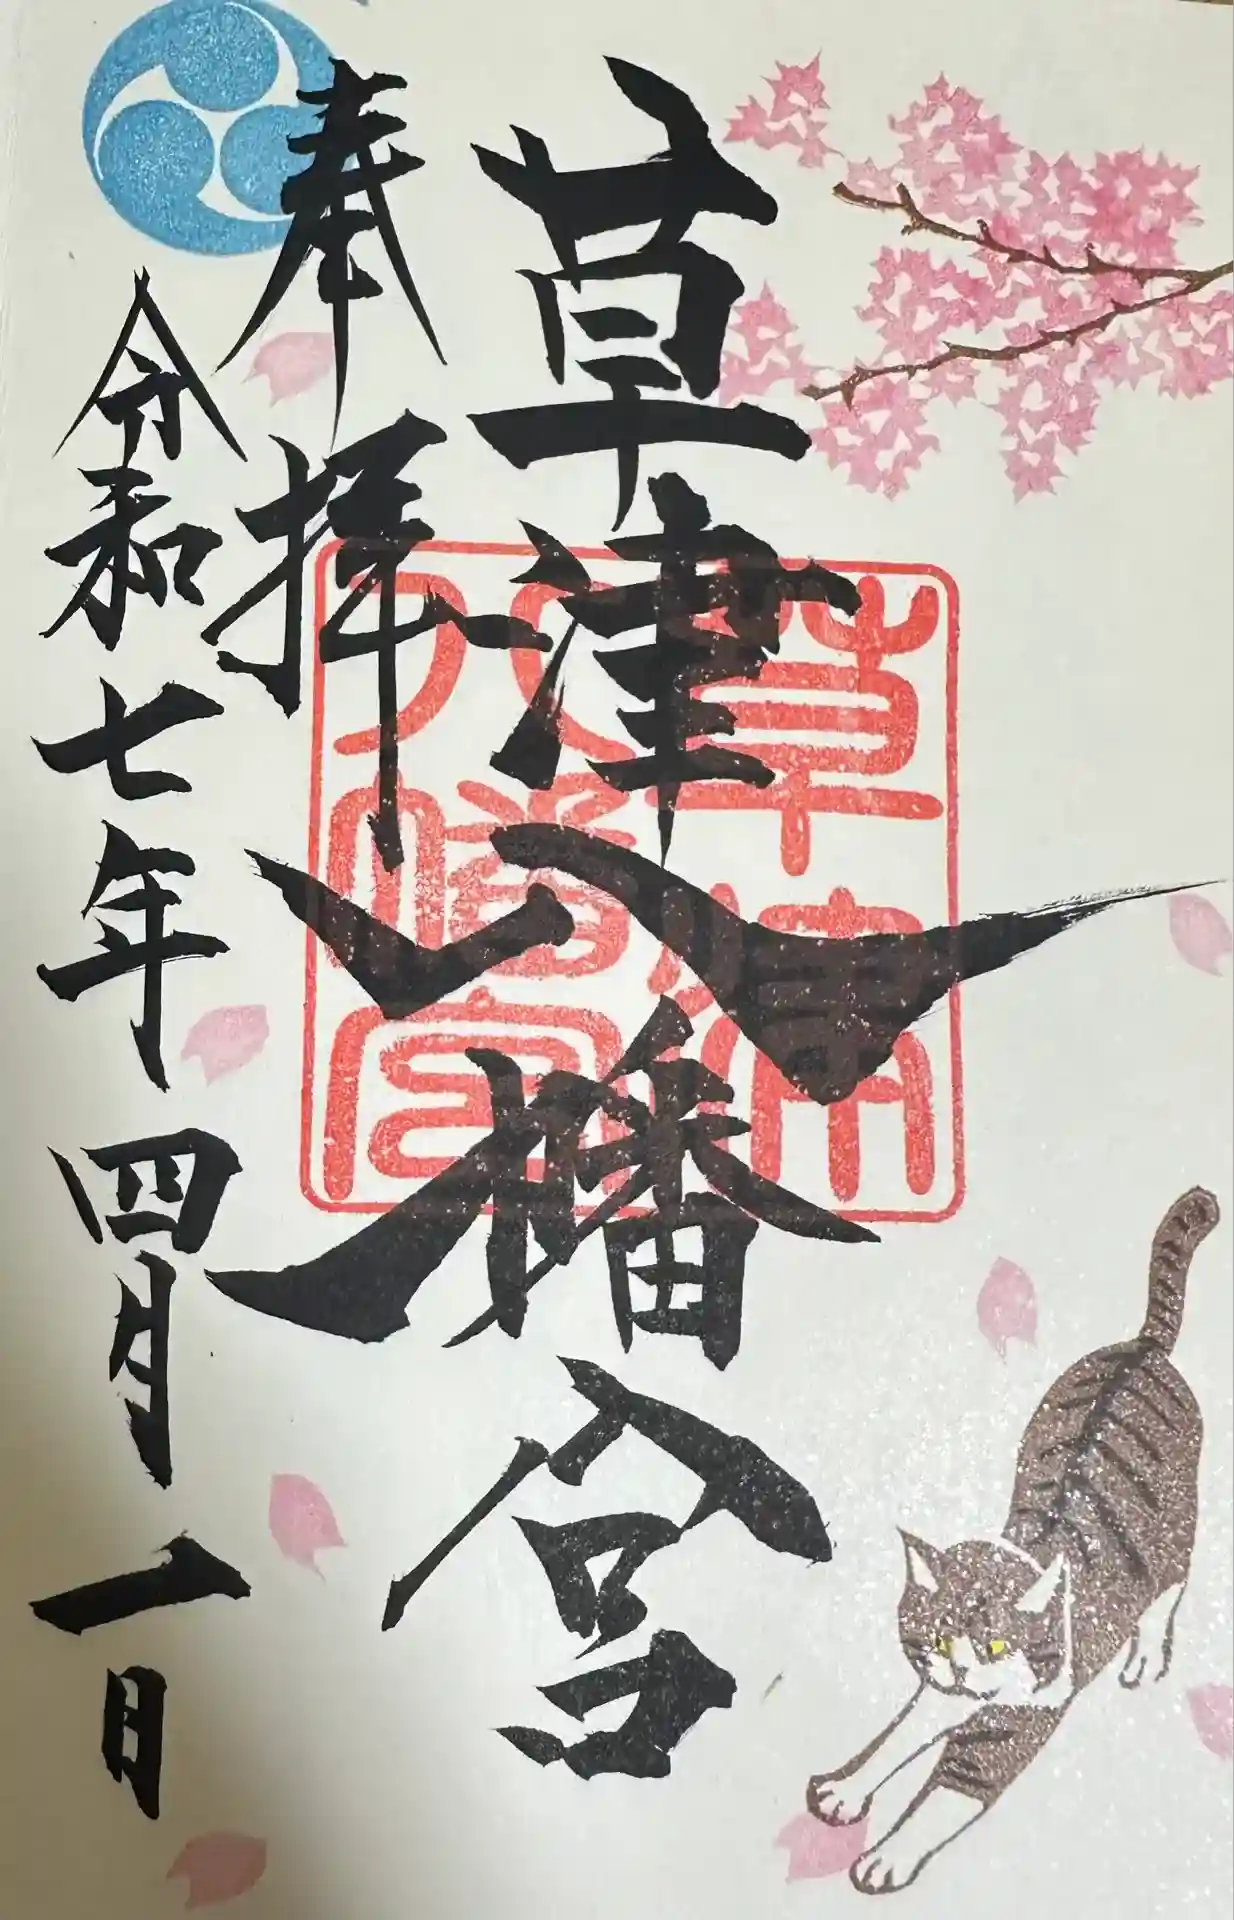 草津八幡宮
奉拝
令和七年四月一日
草津
八幡宮